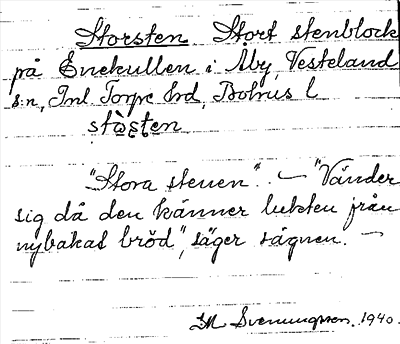 Storsten Stort stenblock
på Enekullen i Åby, Vesteland
s:n, Inl. Torpe hd, Bohus l
"Stora stenen". — "Vänder
sig då den känner lukten från
nybakat bröd", säger sägnen. —
Svenungsson. 1940.